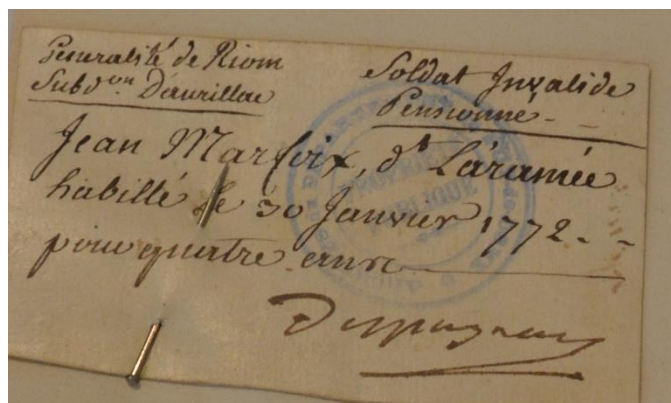 Généralité de Riom
Subd.on D'aurillac
Soldat Invalide
Pensionné
Jean Marfoix, dt Láramée
habillé le 30 Janvier 1772
pour quatre ans
PROPRIÉTÉ
PUBLIQUE